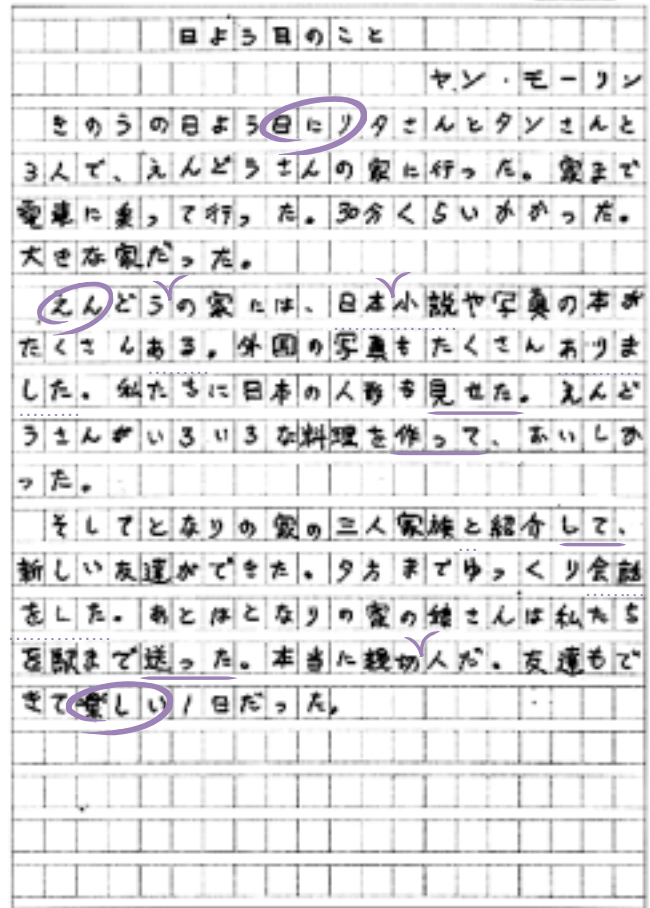 日よう日のこと
ヤン・モーリン
きのうの日よう日にリタさんとタンさんと
3人で、えんどうさんの家に行った。家まで
電車に乗って行った。30分くらいかかった。
大きな家だった。
えんどうの家には、日本小説や写真の本が
たくさんある。外国の写真もたくさんありま
した。私たちに日本の人形を見せた。えんど
うさんがいろいろな料理を作って、おいしか
った。
そしてとなりの家の三人家族と紹介して、
新しい友達ができた。夕方までゆっくり会話
をした。あとはとなりの家の娘さんは私たち
を駅まで送った。本当に親切人だ。友達もで
きて楽しい1日だった。